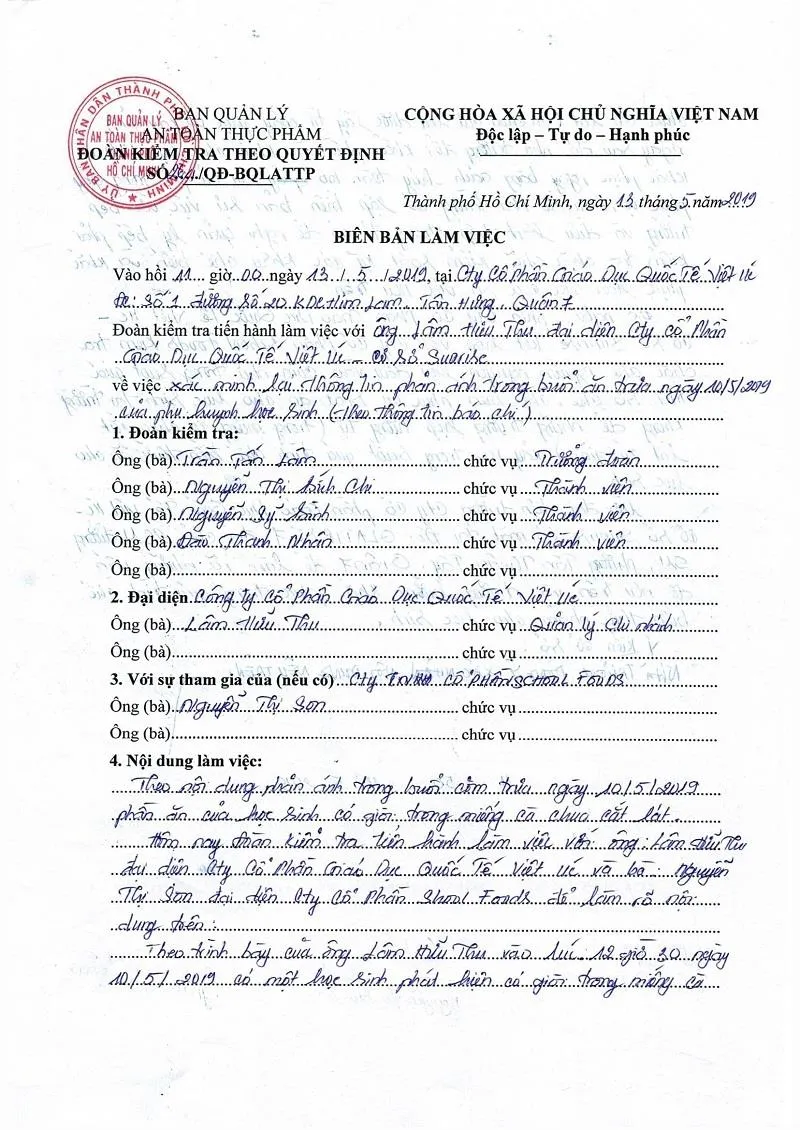 BAN QUẢN LÝ
AN TOÀN THỰC PHẨM
ĐOÀN KIỂM TRA THEO QUYẾT ĐỊNH
SỐ /QĐ-BQLATTP
ỦY BAN NHÂN DÂN THÀNH PHỐ HỒ CHÍ MINH
BAN QUẢN LÝ
AN TOÀN THỰC PHẨM
THÀNH PHỐ
HỒ CHÍ MINH
CỘNG HÒA XÃ HỘI CHỦ NGHĨA VIỆT NAM
Độc lập – Tự do – Hạnh phúc
Thành phố Hồ Chí Minh, ngày 13 tháng 5 năm 2019
BIÊN BẢN LÀM VIỆC
Vào hồi 11 giờ 00 ngày 13 / 5 / 2019, tại Cty Cổ Phần Giáo Dục Quốc Tế Việt Úc
Đc: Số 1 đường Số 20 KDC Him Lam. Tân Hưng. Quận 7
Đoàn kiểm tra tiến hành làm việc với ông Lâm Hữu Thu đại diện Cty Cổ Phần
Giáo Dục Quốc Tế Việt Úc - Cơ Sở Sunrise
về việc xác minh lại thông tin phản ánh trong buổi ăn trưa ngày 10/5/2019
của phụ huynh học sinh (theo thông tin báo chí)
1. Đoàn kiểm tra:
Ông (bà) Trần Tấn Lâm chức vụ Trưởng đoàn
Ông (bà) Nguyễn Thị Bích Chi chức vụ Thành viên
Ông (bà) Nguyễn Sỹ chức vụ Thành viên
Ông (bà) Đào Thanh Nhân chức vụ Thành viên
Ông (bà) chức vụ
2. Đại diện Công ty Cổ Phần Giáo Dục Quốc Tế Việt Úc
Ông (bà) Lâm Hữu Thu chức vụ Quản lý Chi nhánh
Ông (bà) chức vụ
3. Với sự tham gia của (nếu có) Cty CỔ PHẦN SCHOOL FOODS
Ông (bà) Nguyễn Thị Son chức vụ
Ông (bà) chức vụ
4. Nội dung làm việc:
Theo nội dung phản ánh trong buổi cơm trưa ngày 10/5/2019
phần ăn của học sinh có giòi trong miếng cà chua cắt lát.
Hôm nay Đoàn kiểm tra tiến hành làm việc với ông: Lâm Hữu Thu
đại diện Cty Cổ Phần Giáo Dục Quốc Tế Việt Úc và bà: Nguyễn
Thị Son đại diện Cty Cổ Phần Shool Foods để làm rõ nội
dung trên:
Theo trình bày của ông Lâm Hữu Thu vào lúc 12 giờ 30 ngày
10/5/2019 có một học sinh phát hiện có giòi trong miếng cà